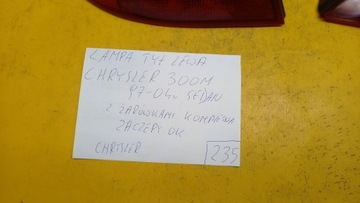 LAMPA TYŁ LEWA
CHRYSLER 300M
97-04r SEDAN
Z ŻARÓWKAMI KOMPLETNA
ZACZEPY OK
CHRYSLER
235